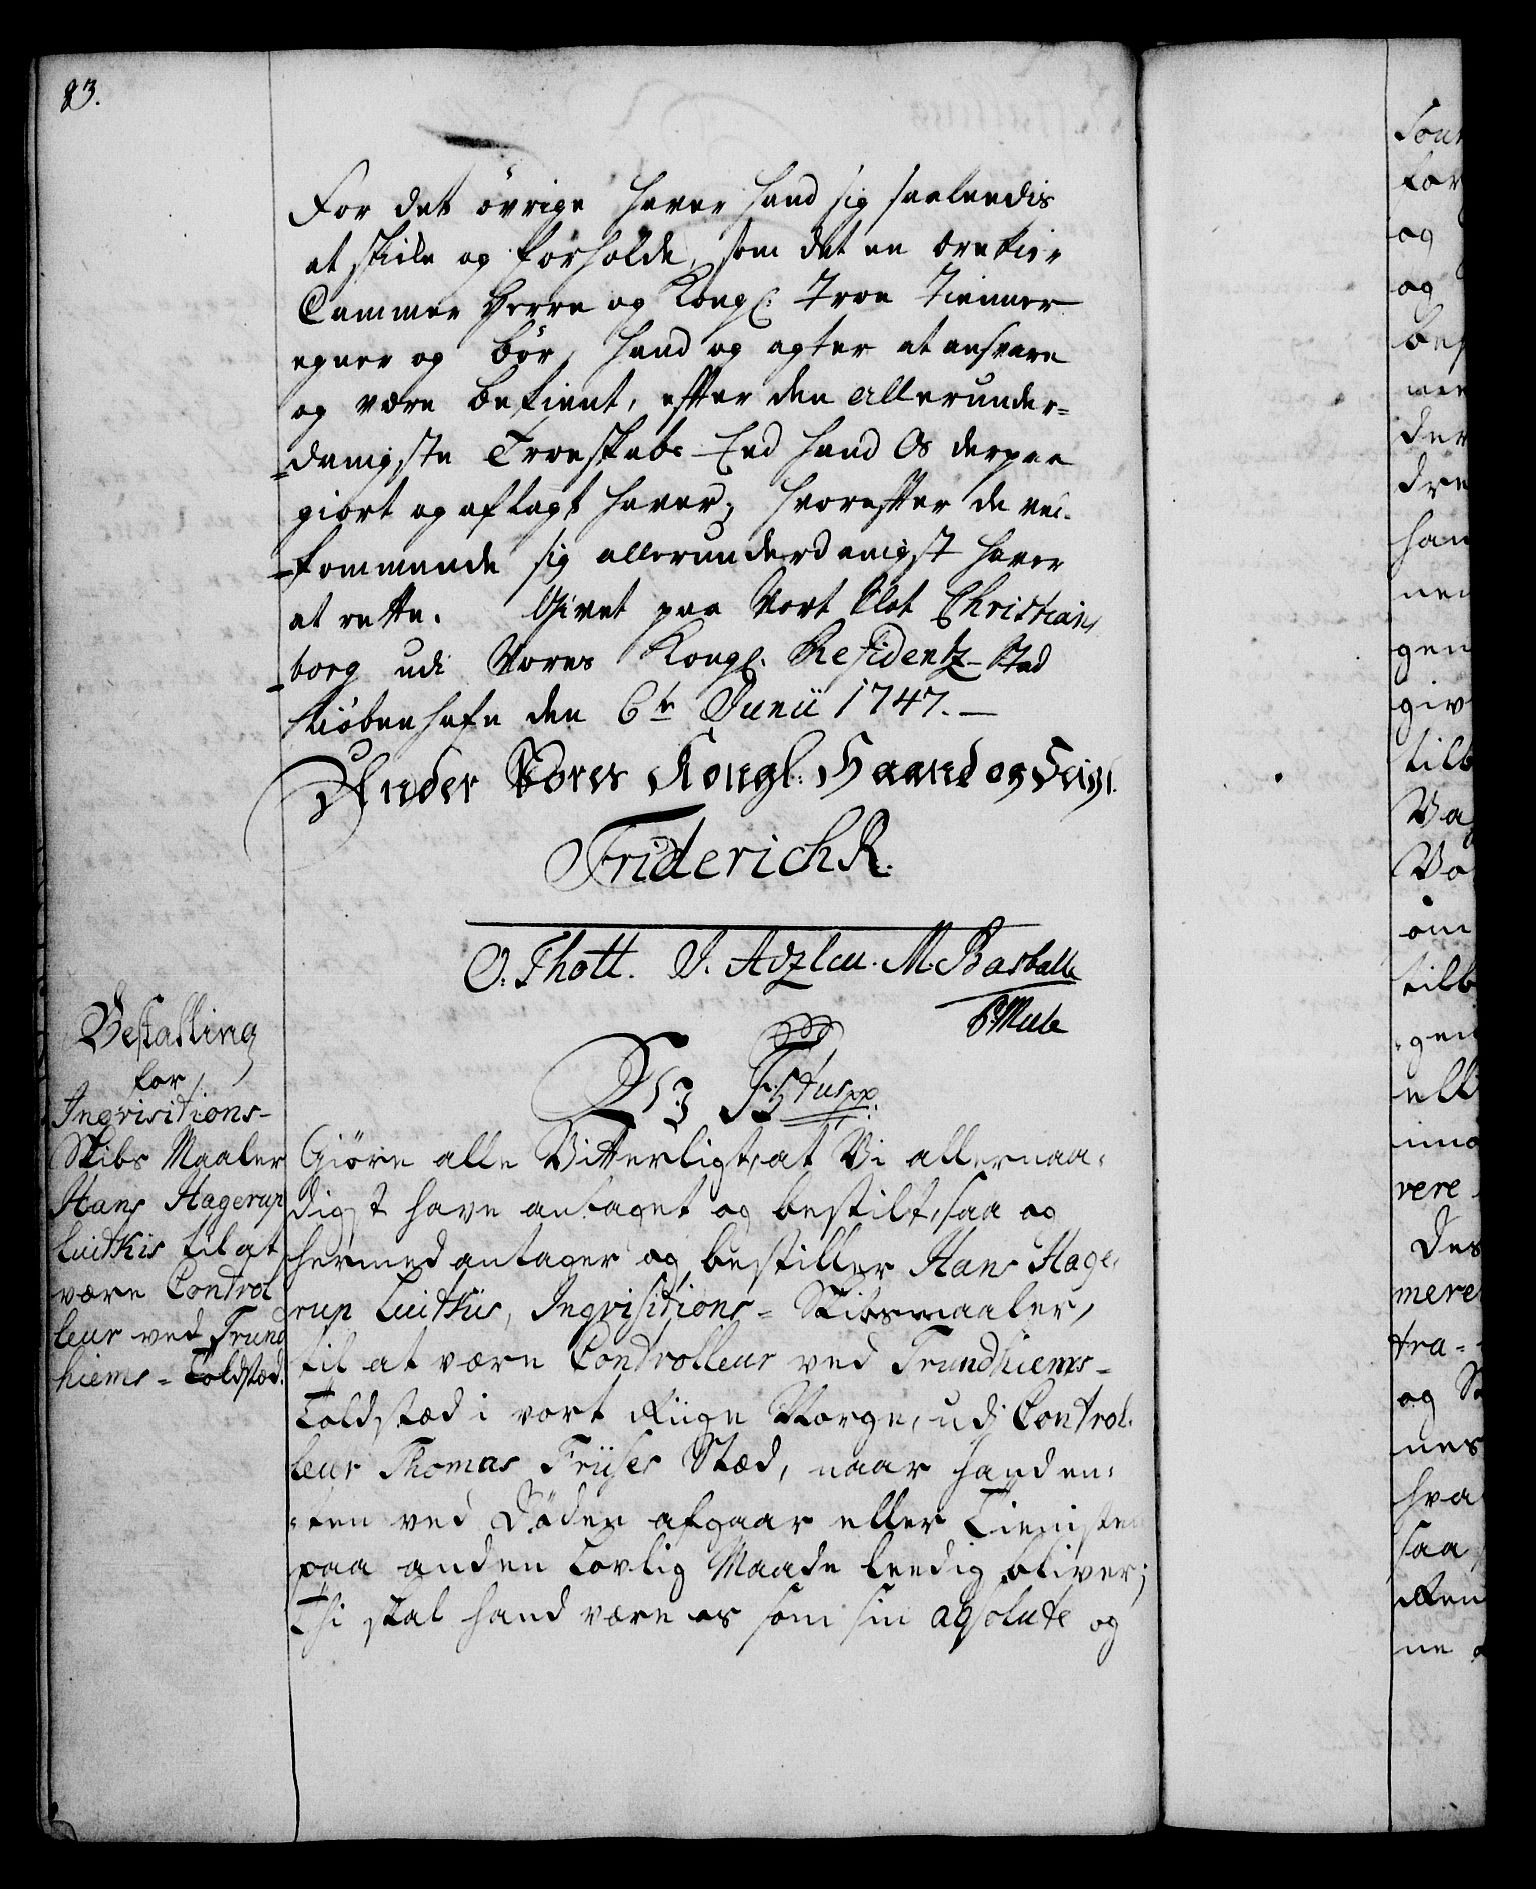 83.
For det övrige haver hand sig saaledis
at skike og forholde, som det en ærekier
Cammer Herre og Kongl: Troe Tienner
egner og bör, hand og agter at ansvare
og være bekient, efter den allerunder=
=danigste Troeskabs Eed hand Os derpaa
giort og aflagt haver; hvorefter de ved=
=kommende sig allerunderdanigst haver
at rette. Givet paa Vort Slot Christians
borg udi Vores Kongl. Residentz-Stad
Kiöbenhafn den 6te Junii 1747.
Under Vores Kongl: Haand og Seigl.
Friderich R.
O. Thott. M. Barballe
Bestalling
for
Inqvisitions-
Skibs Maaler
Hans Hagerup
Luitkis til at
være Control
leur ved Trund
hiems-Toldstæd.
F: 5tus pp:
Giöre alle Vitterligt, at Vi allernaa=
digst have antaget og bestilt, saa og
hermed antager og bestiller Hans Hage=
rup Luitkiis, Inqvisitions-Skibsmaaler,
til at være Controlleur ved Trundhiems-
Toldstæd i vort Riige Norge, udi Control=
leur Thomas Friises Stæd, naar hand en=
=ten ved Döden afgaar eller Tienisten
paa anden Lovlig Maade leedig bliver;
Thi skal hand være os som sin absolute og